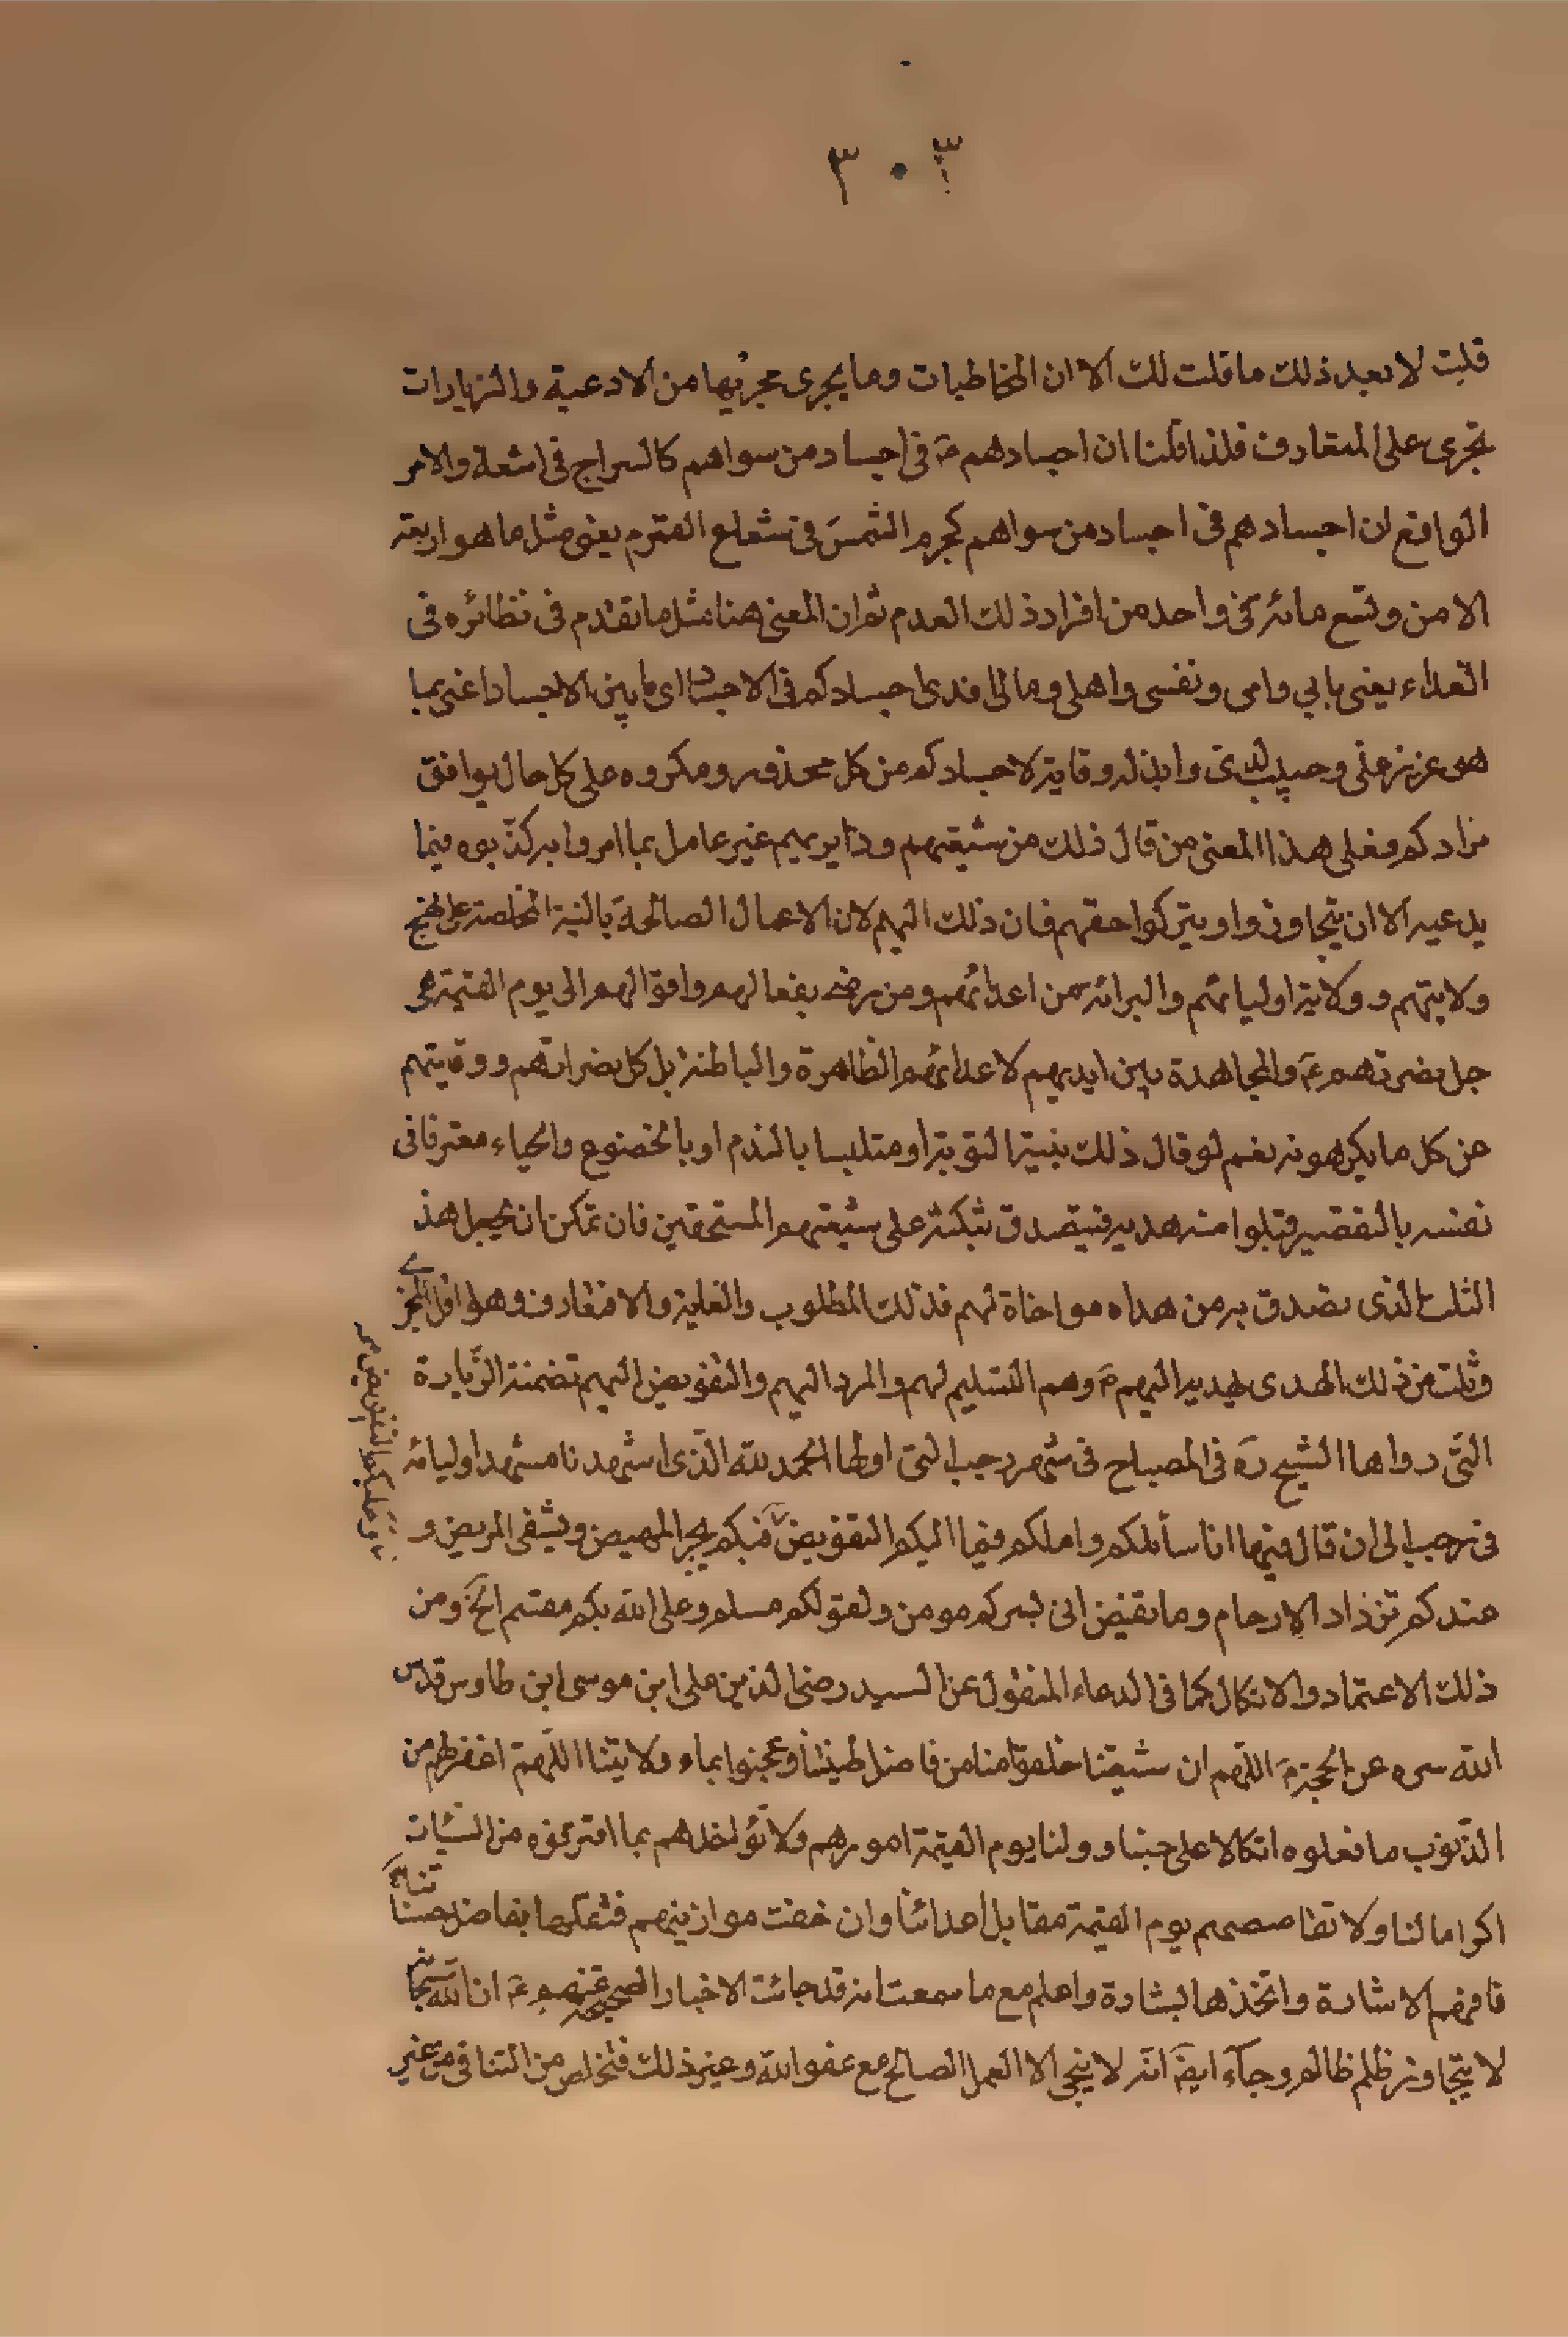 ٣٠٣
قلت لا بعد ذلك ما قلت لك الا ان المخاطبات وما يجرى مجريها من الادعية والزيارات
تجرى على المتعارف فلذا قلنا ان اجسادهم ع في اجساد من سواهم كالسراج في اشعة والامر
الواقع ان اجسادهم في اجساد من سواهم كجرم الشمس في شعاع القمر م يعنى مثل ما هو اربعة
الا من وتسع مائة كخ واحد من افراد ذلك العدم ثم ان المعنى هنا مثل ما تقدم في نظائره في
الفداء يعنى بابي وامى ونفسى واهلى ومالى افدى اجسادكم في الاجساد اى ما بين الاجساد اعنى بما
هو عزيز على وحبيب لدى وابذله وقاية لاجسادكم من كل محذور ومكروه على كل حال يوافق
مرادكم فعلى هذا المعنى من قال ذلك من شيعتهم ودايريهم غير عامل بما امروا به كذبوه فيما
يدعيه الا ان يتجاوزوا ويتركوا حقهم فان ذلك اليهم لان الاعمال الصالحة بالنية الخالصة على نهج
ولايتهم وولاية اوليائهم والبرائة من اعدائهم ومن رضى بفعالهم واقوالهم الى يوم القيمة هى
جل نصرتهم ع والمجاهدة بين ايديهم لاعدائهم الظاهرة والباطنة بل كل نصراتهم ووقايتهم
من كل ما يكرهونه نعم لو قال ذلك بنية التوبة او متلبسا بالندم او بالخضوع والحياء معترفا في
نفسه بالتقصير قبلوا منه هديه فيتصدق بثلثه على شيعتهم المستحقين فان تمكن ان يجعل هذ
الثلث الذى تصدق به من هداه مواخاة لهم فذلك المطلوب والغاية والا فتعارف وهو اقل المجزى
وثلث من ذلك الهدى يهديه اليهم ع وهم التسليم لهم والرد اليهم والتفويض اليهم تضمنة الزيارة
التى رواها الشيخ ره في المصباح في شهر رجب التى اولها الحمد لله الذى اشهدنا مشهد اوليائه
في رجب الى ان قال فيها انا سائلكم واملكم فيما اليكم التفويض فبكم يجبر المهيض ويشفى المريض و
وعليكم التعويض صح
عندكم تزداد الارحام وما تغيض انى بسركم مومن ولقولكم مسلم وعلى الله بكم مقسم الخ ومن
ذلك الاعتماد والاتكال كما في الدعاء المنقول عن السيد رضى الدين على ابن موسى ابن طاوس قدس
الله سره عن الحجة ع اللهم ان شيعتنا خلقوا منا من فاضل طينتنا وعجنوا بماء ولايتنا اللهم اغفر لهم من
الذنوب ما فعلوه اتكالا على حبنا وولنا يوم القيمة امورهم ولا تؤاخذهم بما اقترفوه من السيئات
اكراما لنا ولا تقاصصهم يوم القيمة مقابل اعدائنا وان خفت موازينهم فثقلها بفاضل حسناتنا
فافهم الاشارة واتخذها بشارة واعلم مع ما سمعت انه قد جائت الاخبار الصحيحة عنهم ع ان الله سبحانه
لا يتجاوز ظلم ظالم وجاء ايض انه لا ينجى الا العمل الصالح مع عفو الله وغير ذلك فتخلص من التنافى من غير